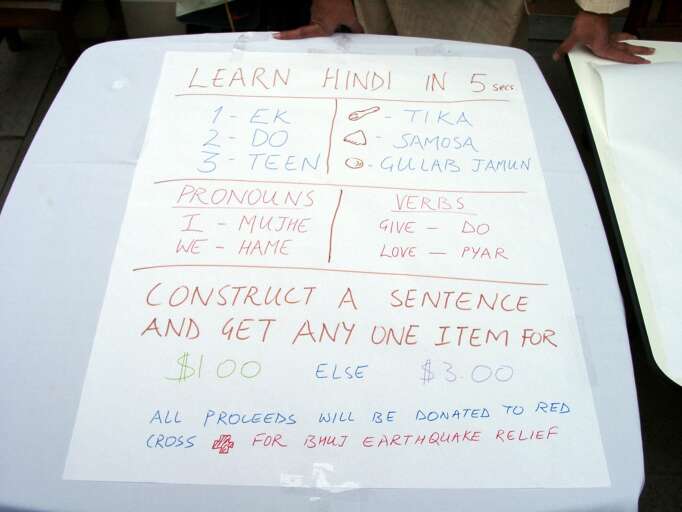 LEARN HINDI IN 5 SECS
1 - EK
2 - DO
3 - TEEN
- TIKA
- SAMOSA
- GULAB JAMUN
PRONOUNS
I - MUJHE
WE - HAME
VERBS
GIVE - DO
LOVE - PYAR
CONSTRUCT A SENTENCE
AND GET ANY ONE ITEM FOR
$1.00 ELSE $3.00
ALL PROCEEDS WILL BE DONATED TO RED
CROSS FOR BHUJ EARTHQUAKE RELIEF